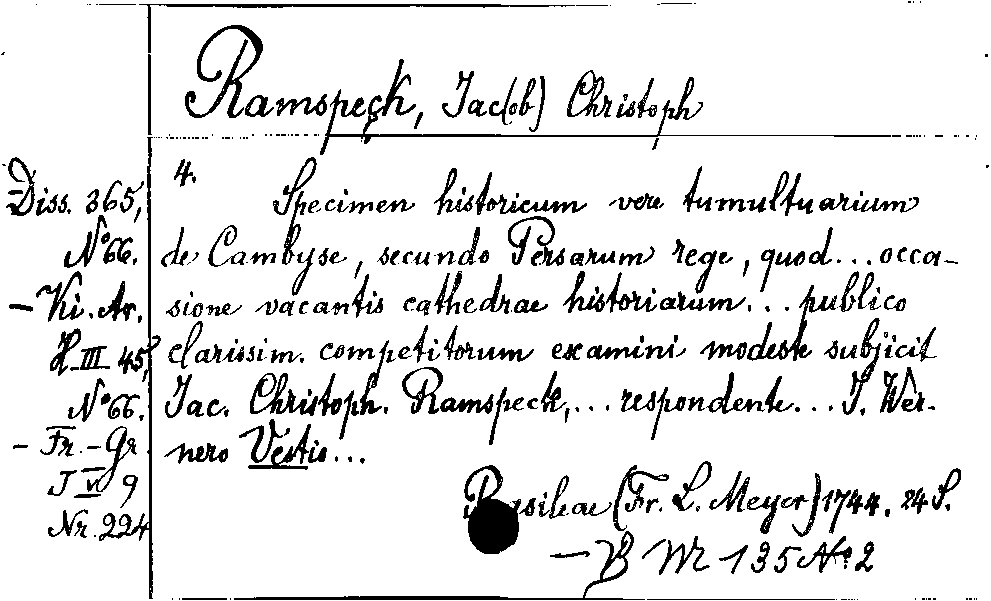 Ramspeck, Jac(ob) Christoph
4.
Diss. 365,
N° 66.
– Ki. Ar.
H III 45,
N° 66.
– Fr.-Gr.
J VI 9
Nr. 224
Specimen historicum vere tumultuarium
de Cambyse, secundo Persarum rege, quod... occa-
sione vacantis cathedrae historiarum... publico
clarissim. competitorum examini modeste subjicit
Jac. Christoph. Ramspeck,... respondente... J. Wer-
nero Vestio...
Basileae (Fr. L. Meyer) 1744. 24 S.
– 135 No 2